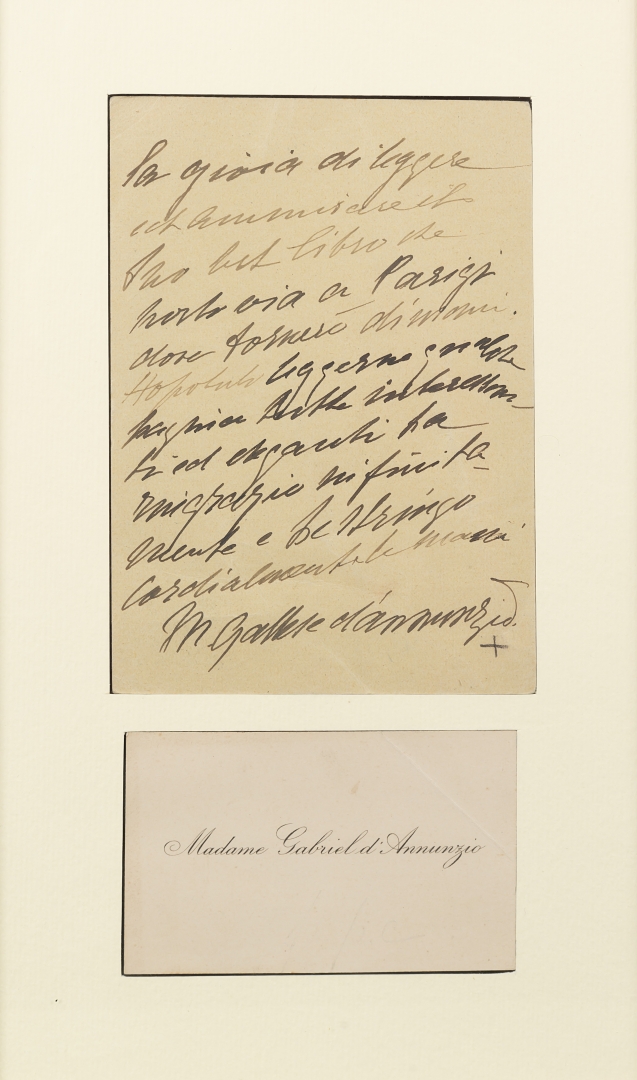 la gioia di leggere
ed ammirare il
tuo bel libro che
porto via a Parigi
dove tornerò dimani.
Ho potuto leggerne qualche
pagina tutte interessan-
ti ed eleganti. Ra
ringrazio infinita-
mente e Le stringo
cordialmente le mani
M Gallese d'annunzio.
+
Madame Gabriel d'Annunzio